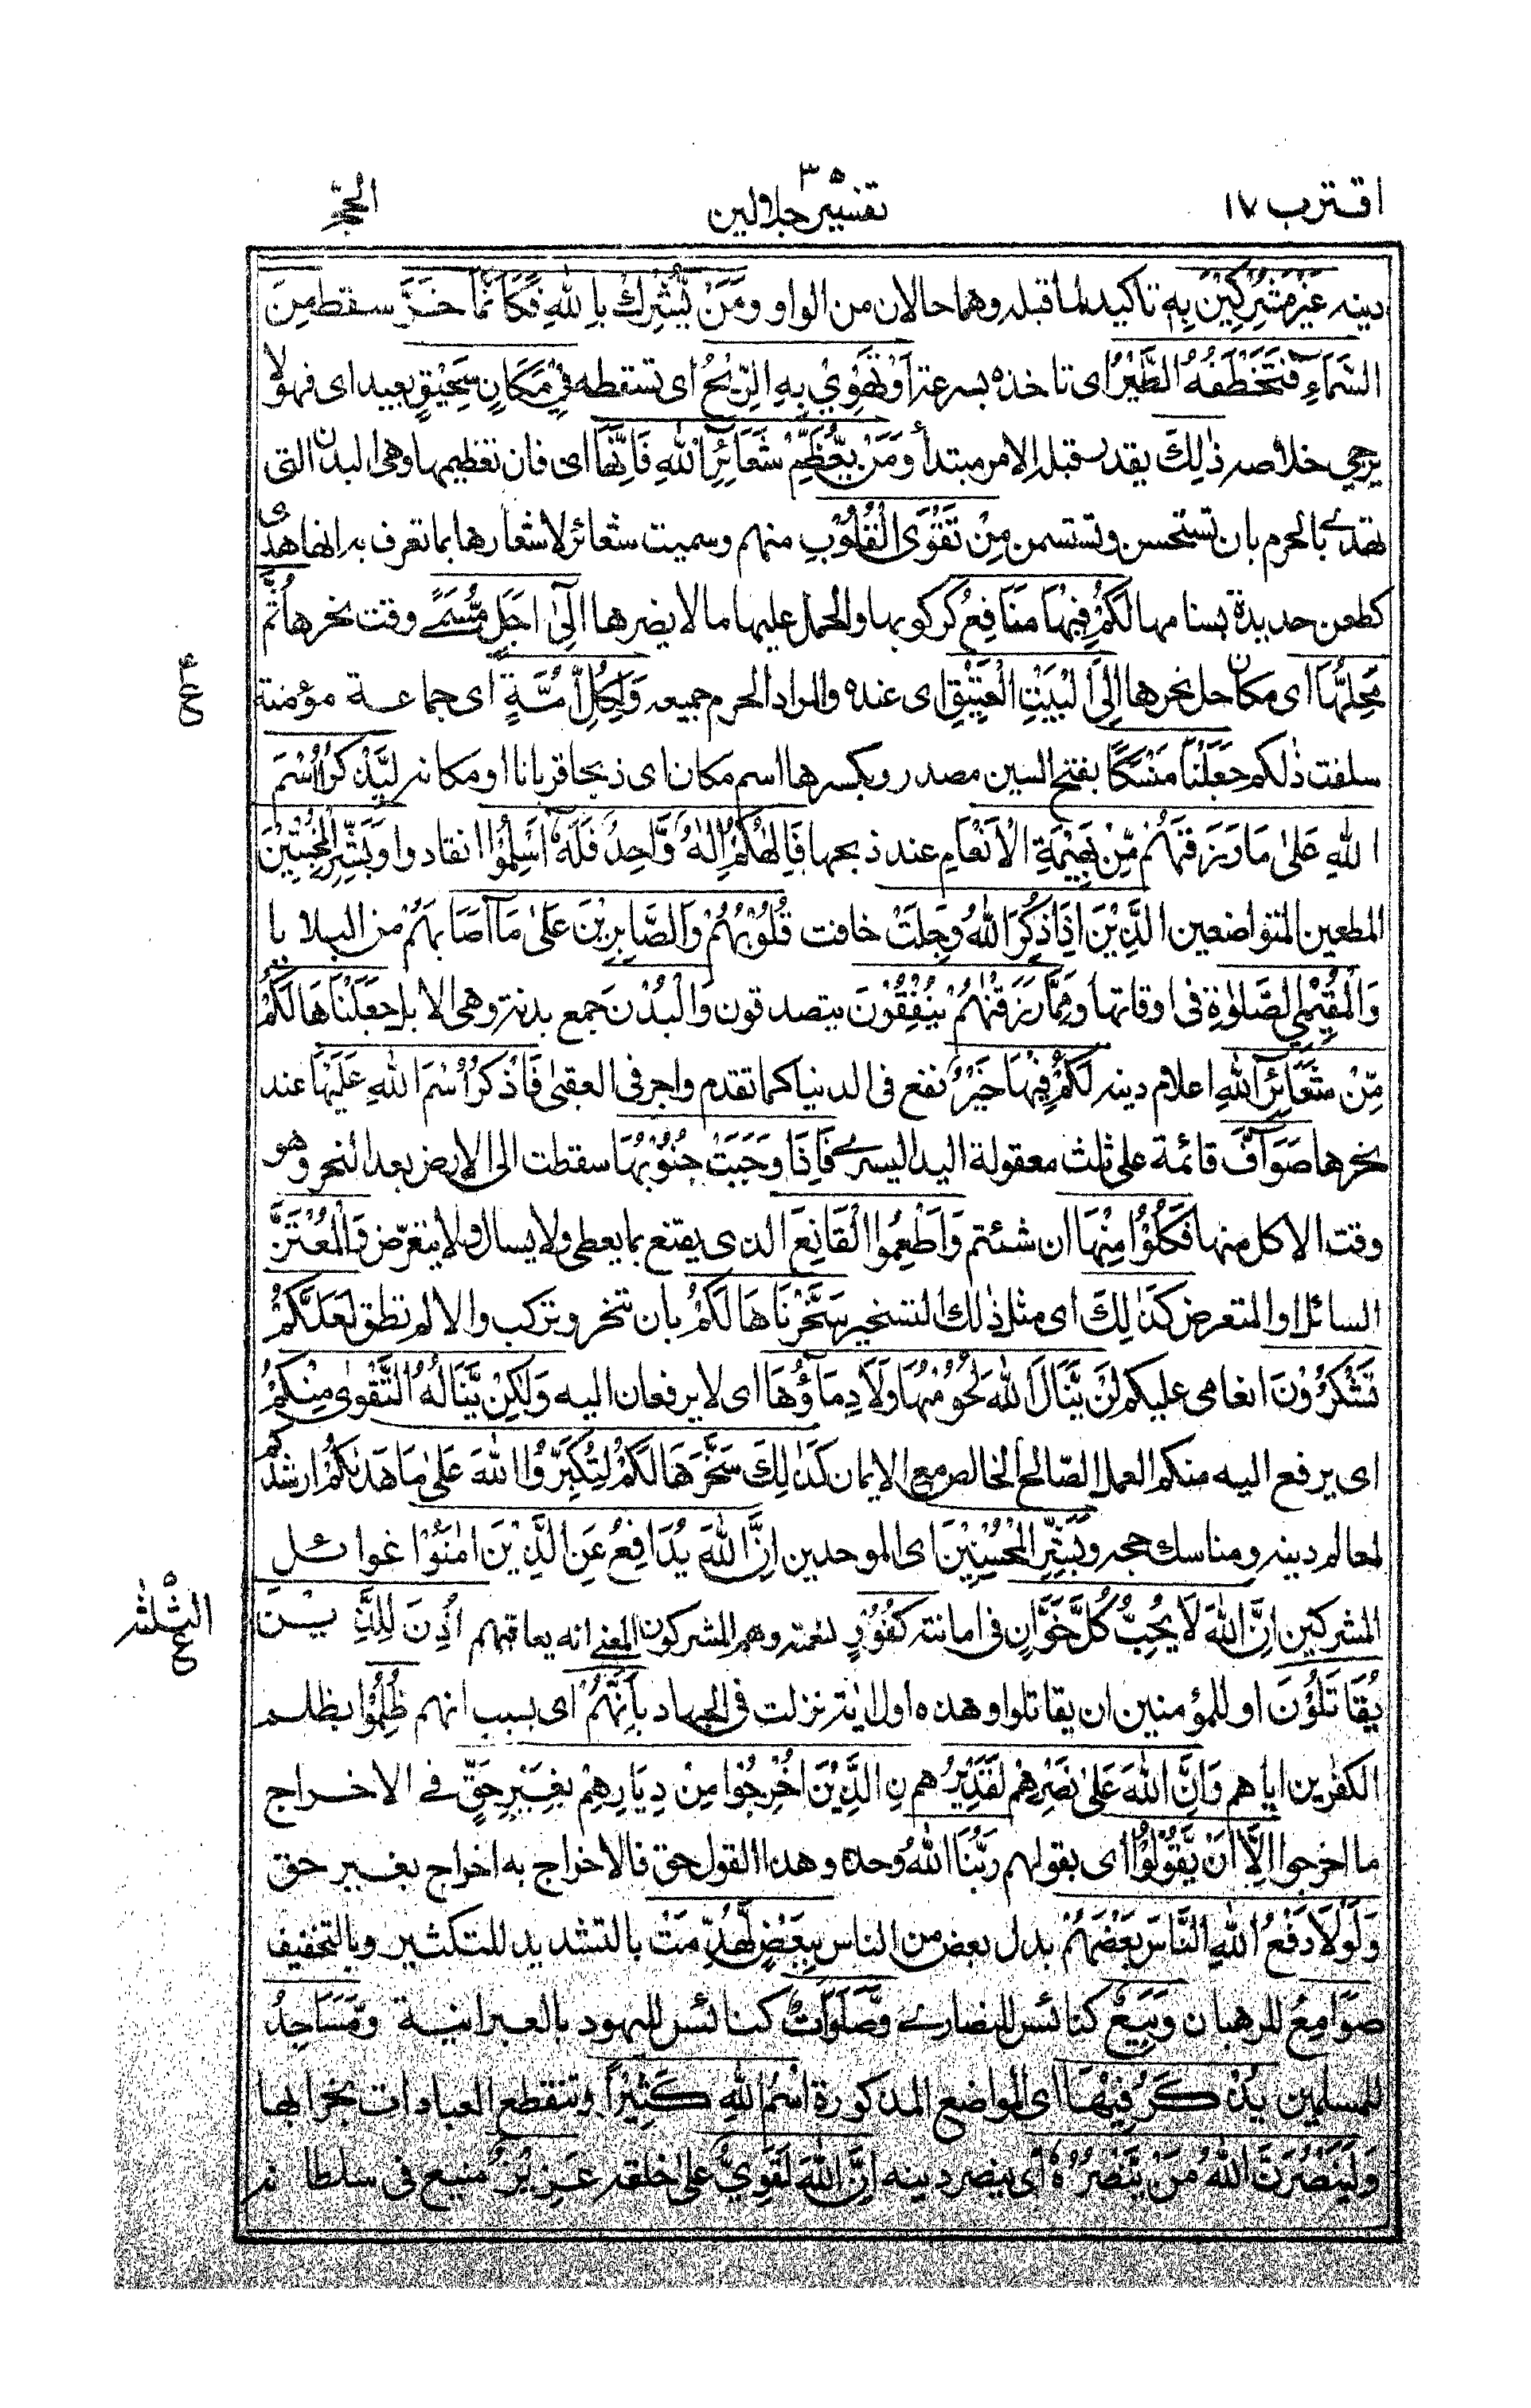 اقترب ١٧
٣٥
تفسير جلالين
الحجّ
دينه غَيْرَ مُشْرِكِيْنَ بِهٖ تاكيد لما قبله وهما حالان من الواو وَمَنْ يُّشْرِكْ بِاللّٰهِ فَكَاَنَّمَا خَرَّ سقط مِنَ
السَّمَآءِ فَتَخْطَفُهُ الطَّيْرُ اى تاخذه بسرعة اَوْ تَهْوِيْ بِهِ الرِّيْحُ اى تسقطه فِيْ مَكَانٍ سَحِيْقٍ بعيد اى فهو لا
يرجى خلاصه ذٰلِكَ يقدر قبله الامر مبتدأ وَمَنْ يُّعَظِّمْ شَعَآئِرَ اللّٰهِ فَاِنَّهَا اى فان تعظيمها وهى البدن التى
تهدى بالحرم بان تستحسن وتستسمن مِنْ تَقْوَى الْقُلُوْبِ منهم وسميت شعائر لاشعارها بما تعرف به انها هدى
كطعن حديدة بسنامها لَكُمْ فِيْهَا مَنَافِعُ كركوبها والحمل عليها ما لا يضرها اِلٰٓى اَجَلٍ مُّسَمًّى وقت نحرها ثُمَّ
مَحِلُّهَا اى مكان حل نحرها اِلَى الْبَيْتِ الْعَتِيْقِ اى عنده والمراد الحرم جميعه وَلِكُلِّ اُمَّةٍ اى جماعة مؤمنة
ع
سلفت ذٰلكم جَعَلْنَا مَنْسَكًا بفتح السين مصدر وبكسرها اسم مكان اى ذبحا قربانا او مكانه لِيَذْكُرُوا اسْمَ
اللّٰهِ عَلٰى مَا رَزَقَهُمْ مِّنْ بَهِيْمَةِ الْاَنْعَامِ عند ذبحها فَاِلٰهُكُمْ اِلٰهٌ وَّاحِدٌ فَلَهٗ اَسْلِمُوْا انقادوا وَبَشِّرِ الْمُخْبِتِيْنَ
المطعين المتواضعين الَّذِيْنَ اِذَا ذُكِرَ اللّٰهُ وَجِلَتْ خافت قُلُوْبُهُمْ وَالصَّابِرِيْنَ عَلٰى مَآ اَصَابَهُمْ من البلايا
وَالْمُقِيْمِي الصَّلٰوةِ فى اوقاتها وَمِمَّا رَزَقْنٰهُمْ يُنْفِقُوْنَ يتصدقون وَالْبُدْنَ جمع بدنة وهى الابل جَعَلْنَاهَا لَكُمْ
مِّنْ شَعَآئِرِ اللّٰهِ اعلام دينه لَكُمْ فِيْهَا خَيْرٌ نفع فى الدنيا كما تقدم واجر فى العقبى فَاذْكُرُوا اسْمَ اللّٰهِ عَلَيْهَا عند
نحرها صَوَآفَّ قائمة على ثلث معقولة اليد اليسرى فَاِذَا وَجَبَتْ جُنُوْبُهَا سقطت الى الارض بعد النحر وهو
وقت الاكل منها فَكُلُوْا مِنْهَا ان شئتم وَاَطْعِمُوا الْقَانِعَ الذى يقنع بما يعطى ولا يسال ولا يتعرّض وَالْمُعْتَرَّ
السائل او المتعرض كَذٰلِكَ اى مثل ذٰلك التسخير سَخَّرْنَاهَا لَكُمْ بان تنحر وتركب والا لم تطق لَعَلَّكُمْ
تَشْكُرُوْنَ انعامى عليكم لَنْ يَّنَالَ اللّٰهَ لُحُوْمُهَا وَلَا دِمَآؤُهَا اى لا يرفعان اليه وَلٰكِنْ يَّنَالُهُ التَّقْوٰى مِنْكُمْ
اى يرفع اليه منكم العمل الصّالح الخالص مع الايمان كَذٰلِكَ سَخَّرَهَا لَكُمْ لِتُكَبِّرُوا اللّٰهَ عَلٰى مَا هَدٰىكُمْ ارشدكم
لمعالم دينه ومناسك حجه وَبَشِّرِ الْمُحْسِنِيْنَ اى الموحدين اِنَّ اللّٰهَ يُدَافِعُ عَنِ الَّذِيْنَ اٰمَنُوْا غوائل
المشركين اِنَّ اللّٰهَ لَا يُحِبُّ كُلَّ خَوَّانٍ فى امانته كَفُوْرٍ لنعمته وهم المشركون المعنى انه يعاقبهم اُذِنَ لِلَّذِيْنَ
الثّلٰثة
ع
يُقَاتَلُوْنَ اى للمؤمنين ان يقاتلوا وهذه اول اية نزلت فى الجهاد بِاَنَّهُمْ اى بسبب انهم ظُلِمُوْا بظلم
الكفرين اياهم وَاِنَّ اللّٰهَ عَلٰى نَصْرِهِمْ لَقَدِيْرٌ هم نِ الَّذِيْنَ اُخْرِجُوْا مِنْ دِيَارِهِمْ بِغَيْرِ حَقٍّ فى الاخراج
ما اخرجوا اِلَّآ اَنْ يَّقُوْلُوْا اى بقولهم رَبُّنَا اللّٰهُ وحده وهذا القول حق فالاخراج به اخراج بغير حق
وَلَوْلَا دَفْعُ اللّٰهِ النَّاسَ بَعْضَهُمْ بدل بعض من الناس بِبَعْضٍ لَّهُدِّمَتْ بالتشديد للتكثير وبالتخفيف
صَوَامِعُ للرهبان وَبِيَعٌ كنائس للنصارى وَّصَلَوَاتٌ كنائس لليهود بالعبرانية وَّمَسَاجِدُ
للمسلمين يُذْكَرُ فِيْهَا اى المواضع المذكورة اسْمُ اللّٰهِ كَثِيْرًا وتنقطع العبادات بخرابها
وَلَيَنْصُرَنَّ اللّٰهُ مَنْ يَّنْصُرُهٗ اى ينصر دينه اِنَّ اللّٰهَ لَقَوِيٌّ على خلقه عَزِيْزٌ منيع فى سلطانه